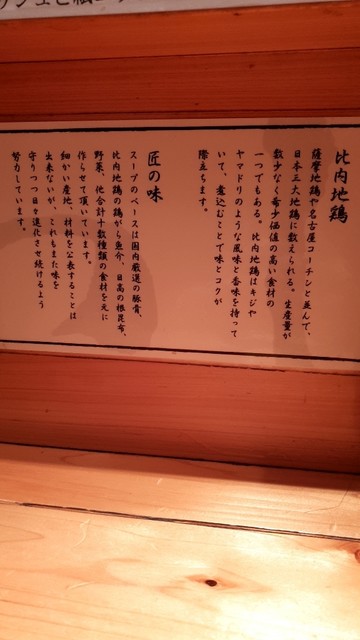 比内地鶏
薩摩地鶏や名古屋コーチンと並んで、
日本三大地鶏に数えられる。生産量が
数少なく希少価値の高い食材の
一つでもある。比内地鶏はキジや
ヤマドリのような風味と香味を持って
いて、煮込むことで味とコクが
際立ちます。
匠の味
スープのベースは国内厳選の豚骨、
比内地鶏の鶏がら魚介、日高の根昆布、
野菜、他合計十数種類の食材を元に
作らせて頂いています。
細かい産地、材料を公表することは
出来ないが、これもまた味を
守りつつ日々進化させ続けるよう
努力しています。